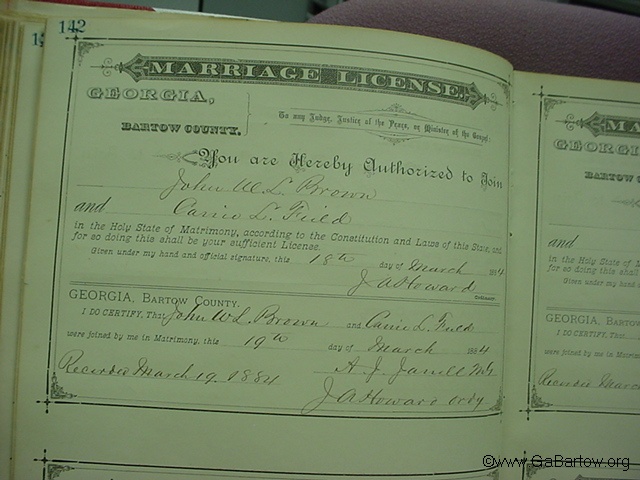 142
MARRIAGE LICENSE.
GEORGIA,
BARTOW COUNTY.
To any Judge, Justice of the Peace, or Minister of the Gospel:
You are Hereby Authorized to Join
John W. L. Brown
and Carrie L. Field
in the Holy State of Matrimony, according to the Constitution and Laws of this State, and
for so doing this shall be your sufficient License.
Given under my hand and official signature, this 18th day of March 1884
J A Howard
Ordinary.
GEORGIA, BARTOW COUNTY.
I DO CERTIFY, That John W. L. Brown and Carrie L. Field
were joined by me in Matrimony, this 19th day of March 1884
A. J. M.G.
Recorded March 19, 1884
J A Howard Ordy
MA
GEORGIA
BARTOW C
and
in the Holy State of M
for so doing this shall
Given under my hand
GEORGIA, BARTOW
I DO CERTIFY, Tha
were joined by me in M
Recorded March
©www.GaBartow.org